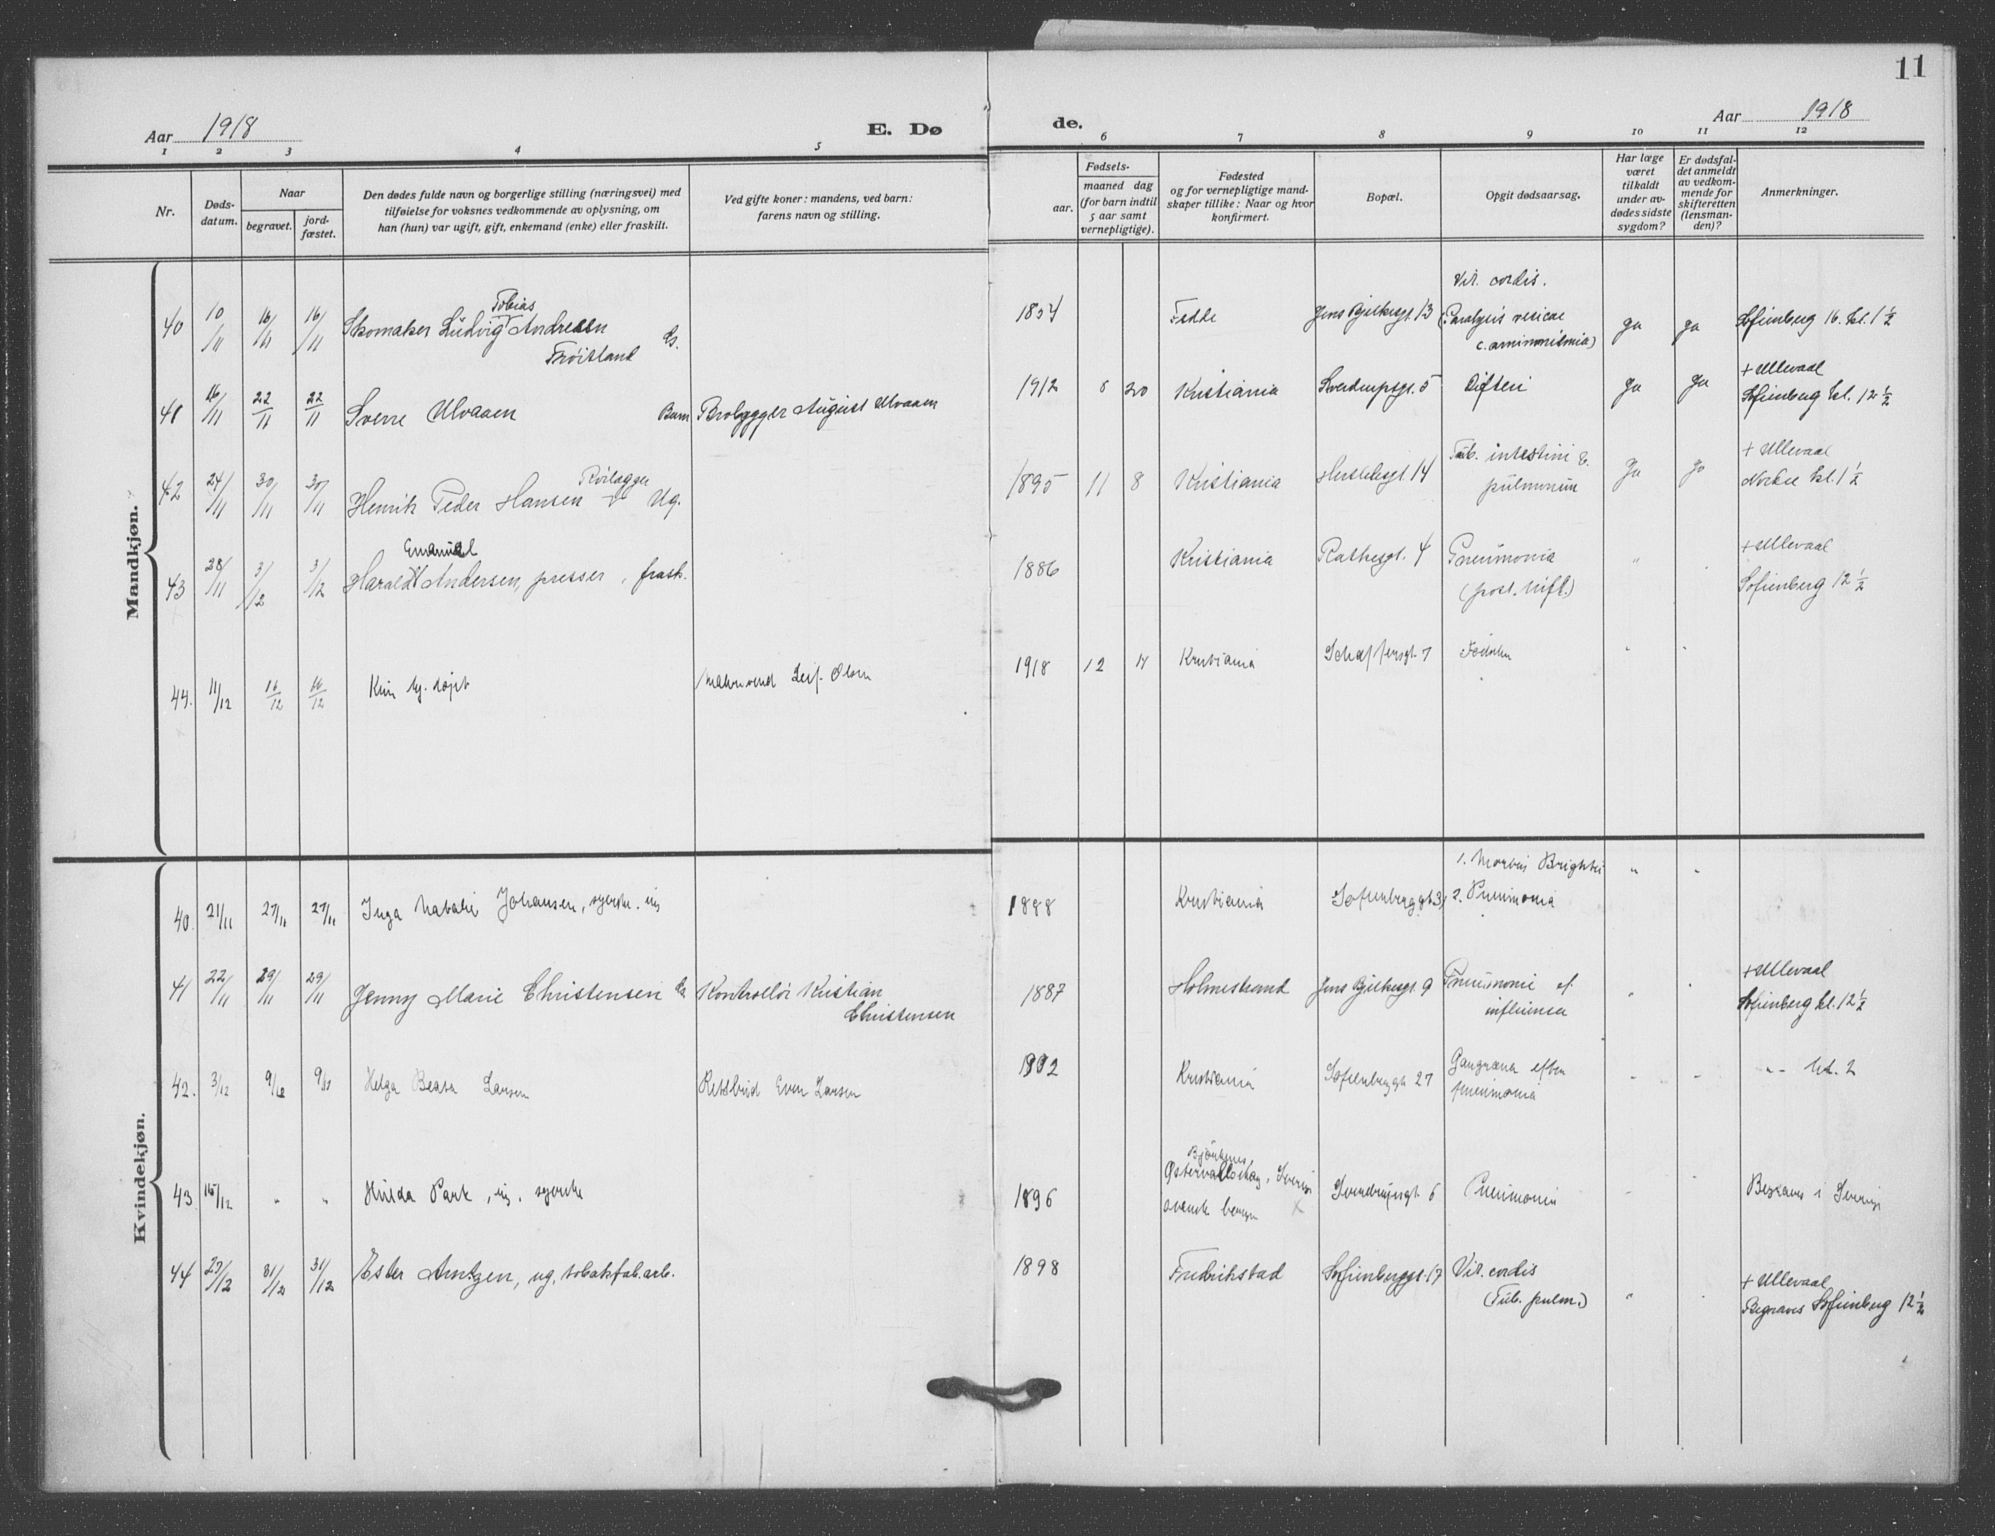 11
Aar 1918
E. Dø
de.
Aar 1918
1 2 3 4 5 6 7 8 9 10 11 12
Nr.
Døds-
datum.
Naar
begravet.
jord-
fæstet.
Den dødes fulde navn og borgerlige stilling (næringsvei) med
tilføielse for voksnes vedkommende av oplysning, om
han (hun) var ugift, gift, enkemand (enke) eller fraskilt.
Ved gifte koner: mandens, ved barn:
farens navn og stilling.
Fødsels-
aar.
maaned dag
(for barn indtil
5 aar samt
vernepligtige).
Fødested
og for vernepligtige mand-
skaper tillike: Naar og hvor
konfirmert.
Bopæl.
Opgit dødsaarsag.
Har læge
været
tilkaldt
under av-
dødes sidste
sygdom?
Er dødsfal-
det anmeldt
av vedkom-
mende for
skifteretten
(lensman-
den)?
Anmerkninger.
Mandkjøn.
40 10/11 16/11 16/11 Skomaker Ludvig Tobias Andresen
Frøisland
Jens Bjelkesgt. 13
Vit. cordis.
(Paralysis vesicae
ja ja Sofienberg 16. kl. 1 1/2
41 16/11 22/11 22/11 Sverre Ulvaaen Barn Brolægger August Ulvaaen
1912 8 20 Kristiania Sverdrupsgt. 5 Difteri ja ja
+ Ullevaal
Sofienberg kl. 12 1/2
42 24/11 30/11 30/11 Henrik Peder Hansen Ug.
1895 11 8 Kristiania 14
Tub. intestini &
pulmonum
ja ja
+ Ullevaal
Nordre kl. 1 1/2
43 28/11 3/12 3/12 Harald Emanuel Andersen, presser, frask.
1886 Kristiania Rathesgt. 4 Pneumonia
(post. infl.)
"
+ Ullevaal
Sofienberg 12 1/2
44. 11/12 16/12 16/12 Kun hj. døpt Leif Olsen
1918 12 Kristiania Schæffersgt. 7
" "
Kvindekjøn.
40. 21/11 27/11 27/11 Inga Natalie Johansen, syerske. ug
1888 Kristiania
1. Morbus Brightii
2. Pneumonia
" "
41 22/11 29/11 29/11 Jenny Marie Christensen Kontrollør Kristian
Christensen
1887 Holmestrand Jens Bjelkesgt. 9 Pneumonie ef.
influensa
"
+ Ullevaal
Sofienberg kl. 12 1/2
42. 3/12 9/12 Helga Larsen Even Larsen
Kristiania Sofienberggt 27
Gangræna efter
pneumonia
kl. 2
43 15/12 " " Hulda Park, ug. syerske
1896
Sverige
svensk
Sverdrupsgt 6 Pneumonia
Begraves i Sverige
44 31/12 31/12 Ester Arntzen, ug. tobakfab.arb.
1898 Fredrikstad Sofienberggt. 17 Vit. cordis
(Tub. pulm.)
"
+ Ullevaal
Begraves Sofienberg 12 1/2